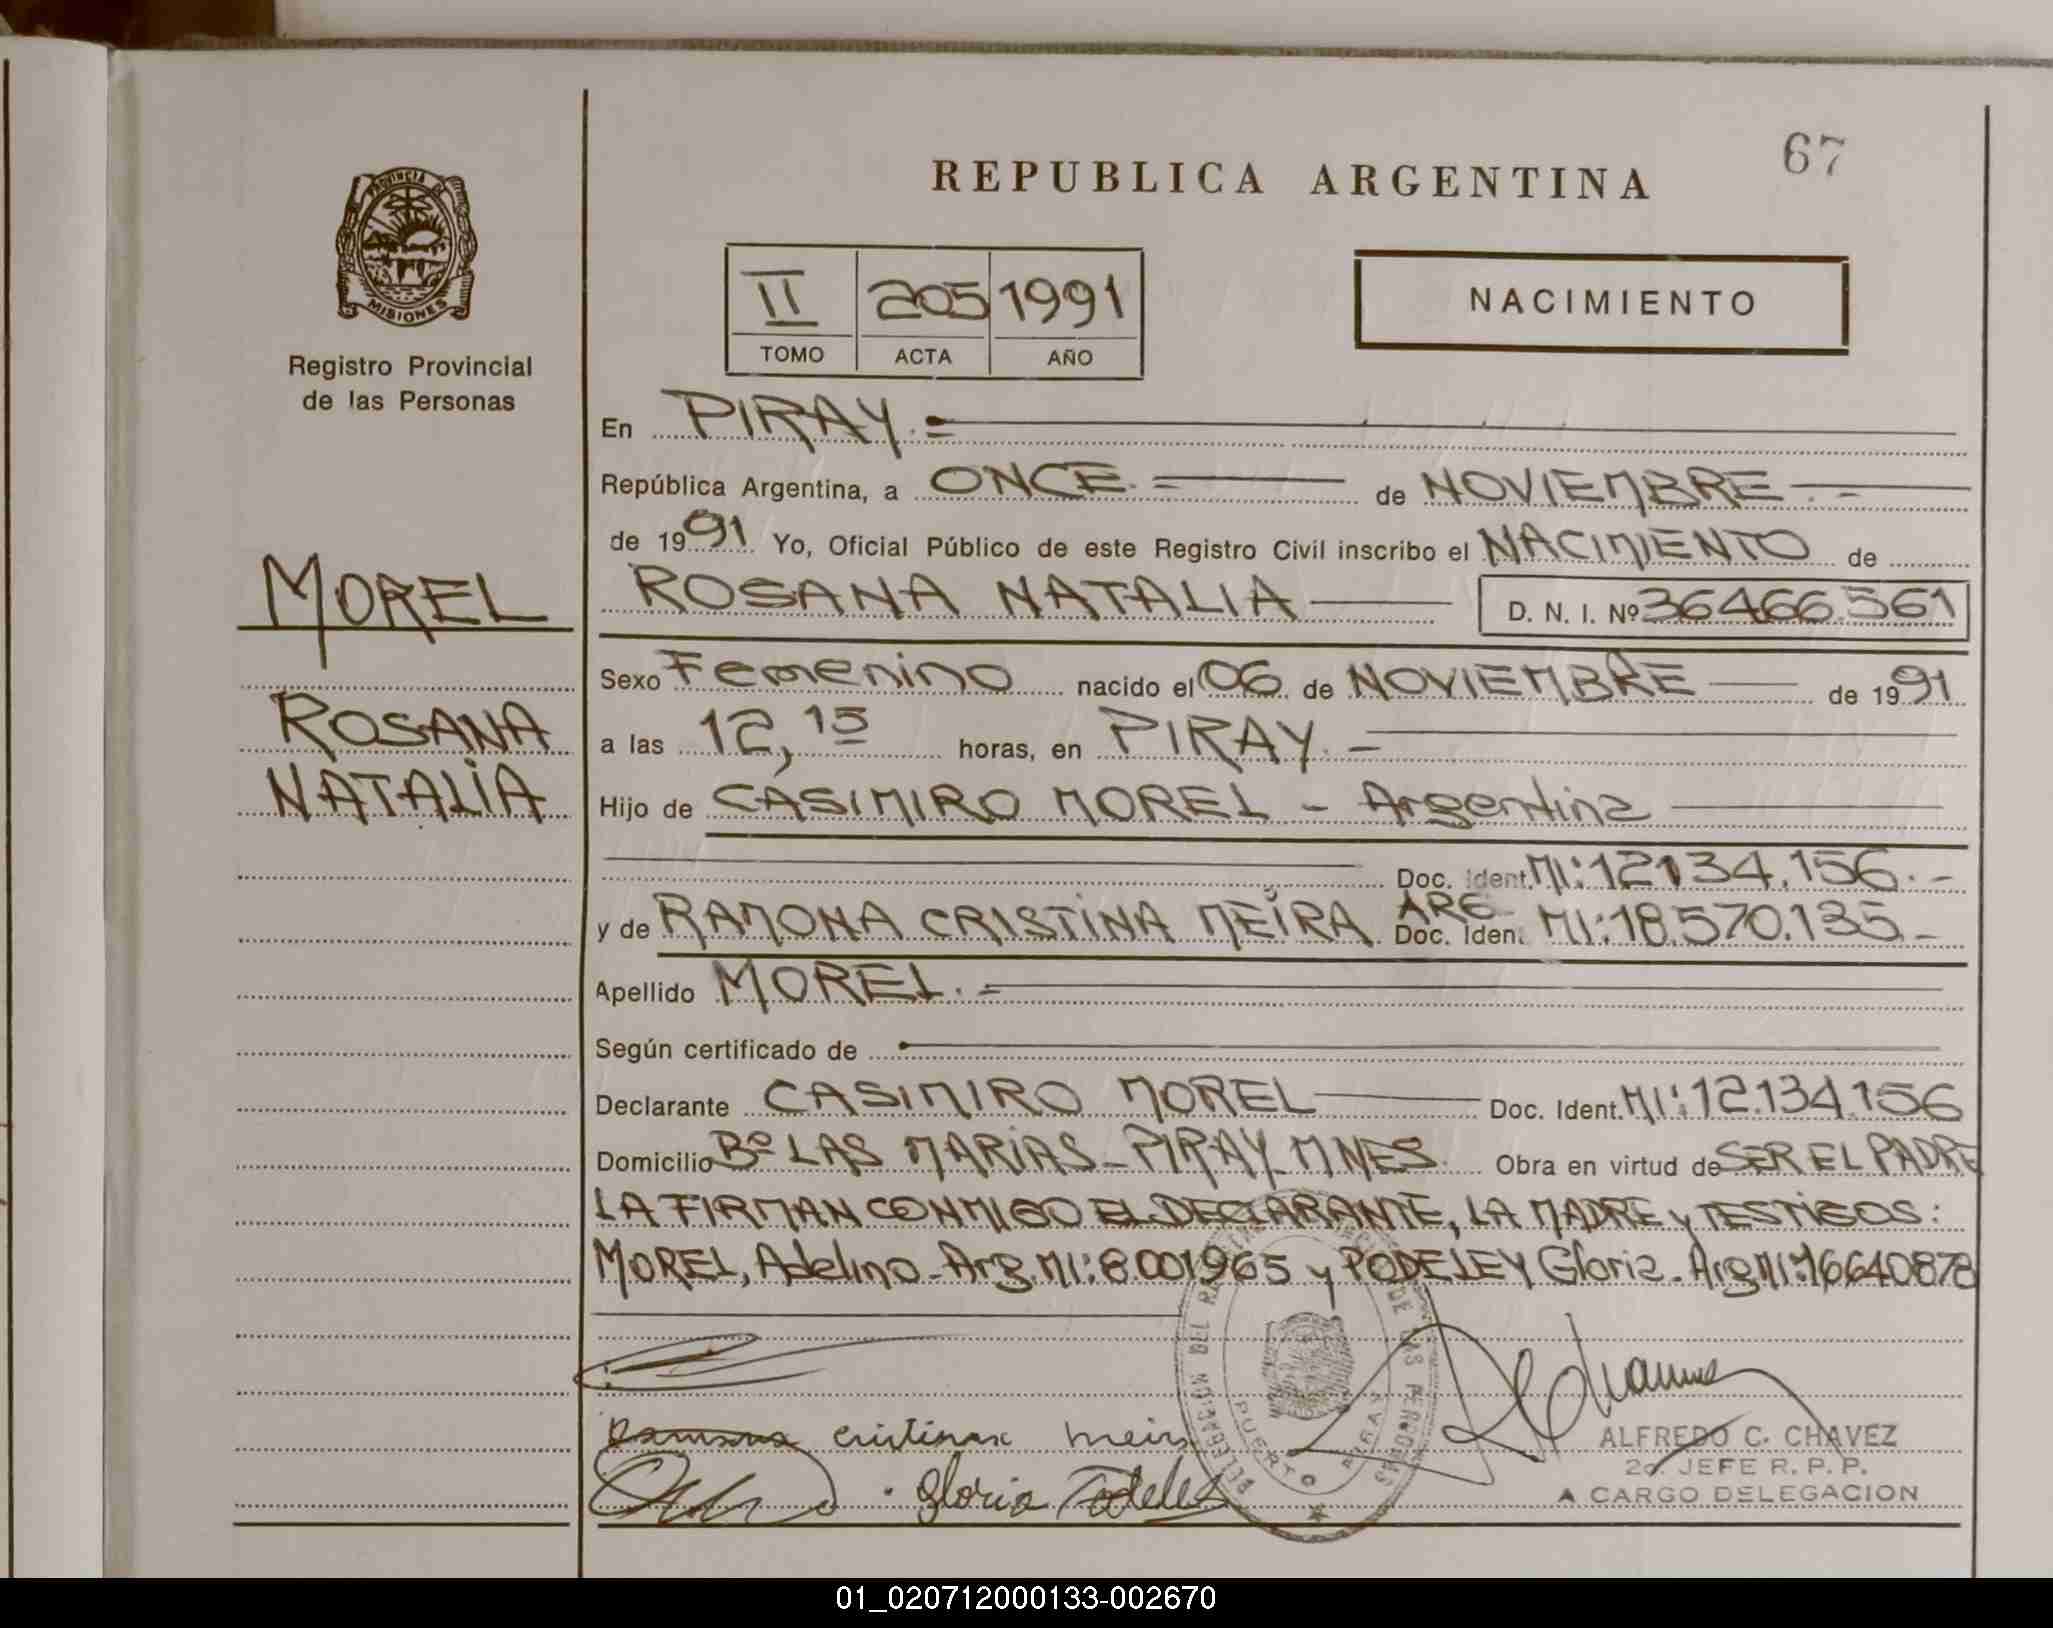 67
REPUBLICA ARGENTINA
PROVINCIA DE MISIONES
Registro Provincial
de las Personas
II 205 1991
TOMO ACTA AÑO
NACIMIENTO
En PIRAY.=
República Argentina, a ONCE.= de NOVIEMBRE.-
de 1991 Yo, Oficial Público de este Registro Civil inscribo el NACIMIENTO de
MOREL
ROSANA NATALIA D. N. I. Nº 36466.561
Sexo Femenino nacido el 06 de NOVIEMBRE de 1991
ROSANA
a las 12,15 horas, en PIRAY.-
NATALIA
Hijo de CASIMIRO MOREL - Argentina
Doc. Ident. MI:12134.156.-
y de RAMONA CRISTINA MEIRA ARG. Doc. Iden. MI:18.570.135.-
Apellido MOREL.=
Según certificado de
Declarante CASIMIRO MOREL Doc. Ident. MI:12.134.156
Domicilio Bº LAS MARIAS - PIRAY - MNES. Obra en virtud de SER EL PADRE
LA FIRMAN CONMIGO EL DECLARANTE, LA MADRE y TESTIGOS:
MOREL, Adelino - Arg. MI:8.001965 y PODELEY Gloria. Arg MI:16640878
DELEGACION DEL REGISTRO DE LAS PERSONAS
PUERTO PIRAY
Ramona cristina meir
ALFREDO C. CHAVEZ
2o. JEFE R. P. P.
A CARGO DELEGACION
Gloria Podeley
01_020712000133-002670